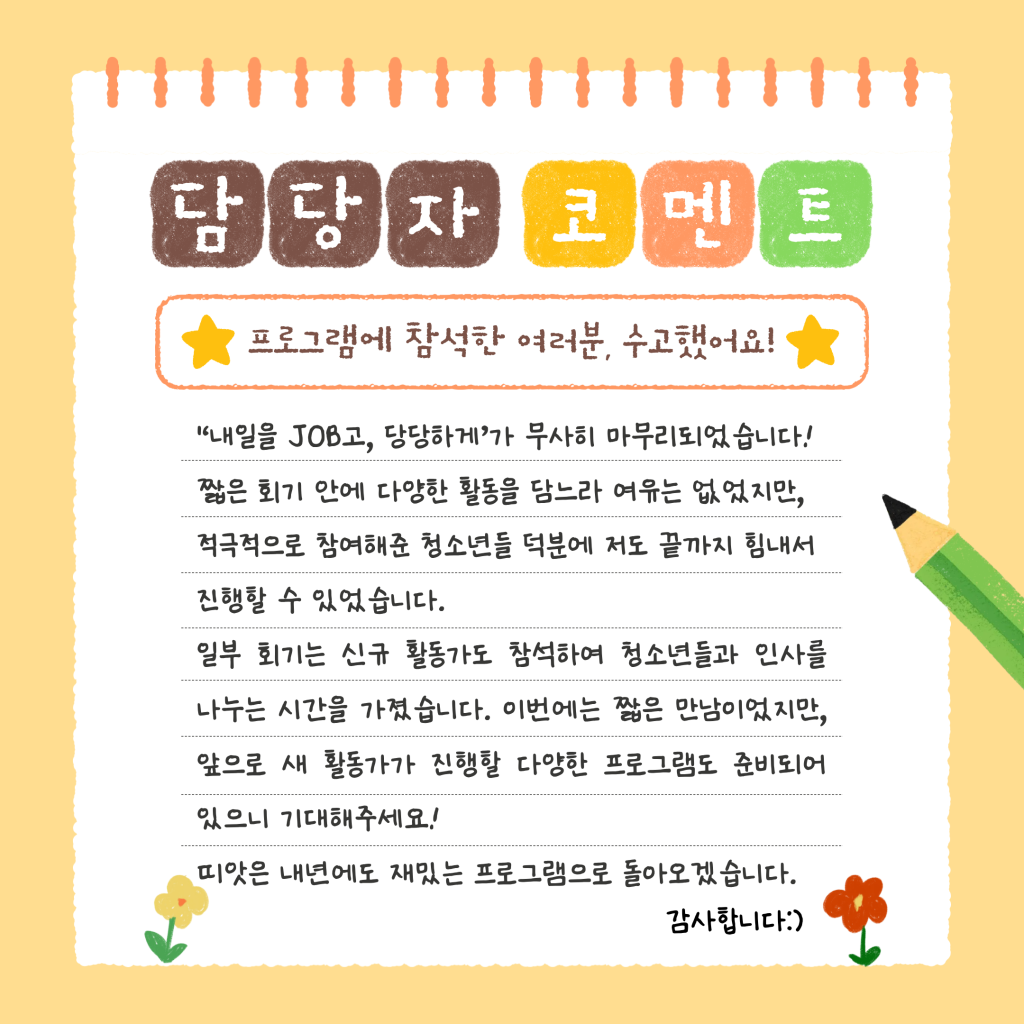 담당자 코멘트
프로그램에 참석한 여러분, 수고했어요!
"내일을 JOB고, 당당하게'가 무사히 마무리되었습니다!
짧은 회기 안에 다양한 활동을 담느라 여유는 없었지만,
적극적으로 참여해준 청소년들 덕분에 저도 끝까지 힘내서
진행할 수 있었습니다.
일부 회기는 신규 활동가도 참석하여 청소년들과 인사를
나누는 시간을 가졌습니다. 이번에는 짧은 만남이었지만,
앞으로 새 활동가가 진행할 다양한 프로그램도 준비되어
있으니 기대해주세요!
띠앗은 내년에도 재밌는 프로그램으로 돌아오겠습니다.
감사합니다:)